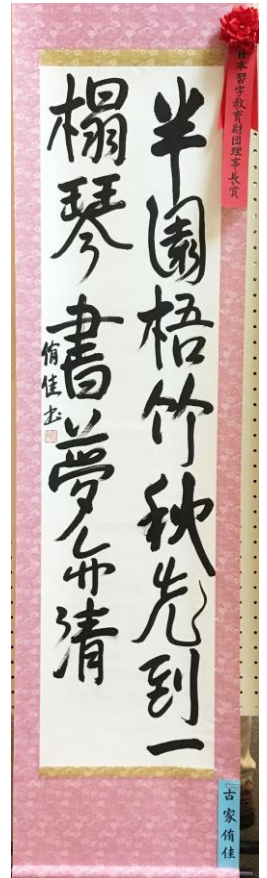 日本習字教育財団理事長賞
半園梧竹秋先到一
榻琴書夢亦清
侑佳書
古家侑佳